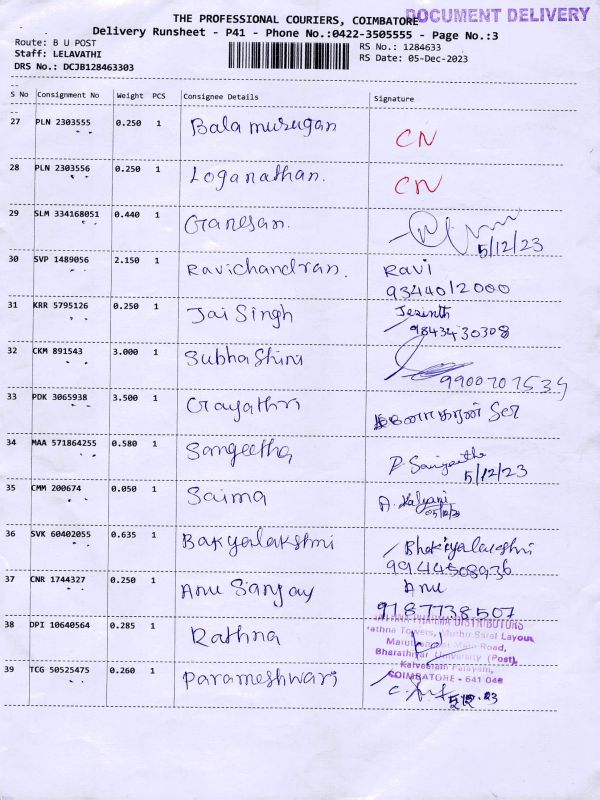 THE PROFESSIONAL COURIERS, COIMBATORE
DOCUMENT DELIVERY
Delivery Runsheet - P41 - Phone No.:0422-3505555 - Page No.:3
Route: B U POST
RS No.: 1284633
Staff: LELAVATHI
RS Date: 05-Dec-2023
DRS No.: DCJB128463303
S No Consignment No Weight PCS Consignee Details Signature
27 PLN 2303555 0.250 1 Bala murugan CN
28 PLN 2303556 0.250 1 Loganathan. CN
29 SLM 334168051 0.440 1 Ganesan.
5/12/23
30 SVP 1489056 2.150 1 Ravichandran. Ravi
9344012000
31 KRR 5795126 0.250 1 Jai Singh Jesinth
9843430308
32 CKM 891543 3.000 1 Subhashini
9900707534
33 PDK 3065938 3.500 1 Gayathri
34 MAA 571864255 0.580 1 Sangeetha P Sangeetha
5/12/23
35 CMM 200674 0.050 1 Saima A. Kalyani
05/12/23
36 SVK 60402055 0.635 1 Bakyalakshmi Bhakiyalakshmi
9944508936
37 CNR 1744327 0.250 1 Anu Sanjay Anu
9187738507
38 DPI 10640564 0.285 1 Rathna
DISTRIBUTORS
Rathna Towers, Muthu Saral Layout,
Main Road,
Bharathiyar University (Post),
COIMBATORE - 641 046
39 TCG 50525475 0.260 1 Parameshwari
5.12.23